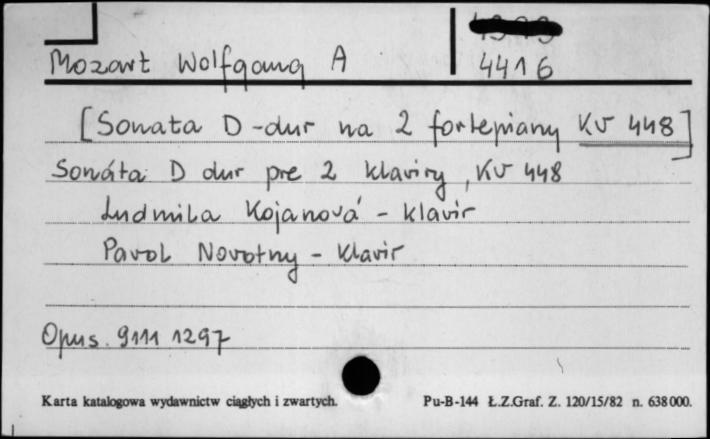 Mozart Wolfgang A
4416
[Sonata D-dur na 2 fortepiany KV 448]
Sonáta D dur pre 2 klaviry, KV 448
Ludmila Kojanová - klavír
Pavol Novotny - klavir
Opus. 9111 1297
Karta katalogowa wydawnictw ciągłych i zwartych.
Pu-B-144 Ł.Z.Graf. Z. 120/15/82 n. 638000.